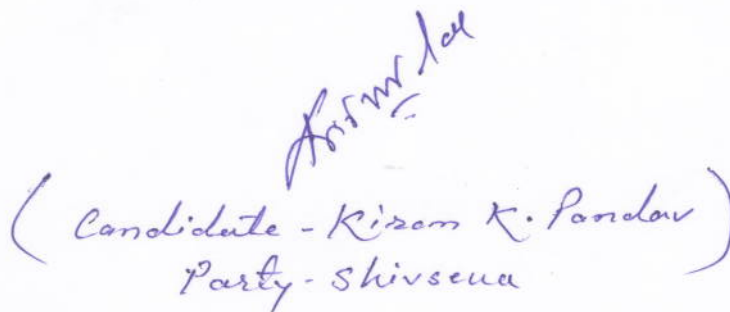 (Candidate - Kiran K. Pandav)
Party - Shivsena